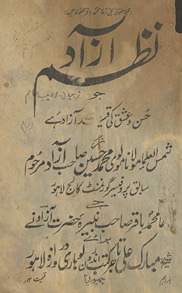 نظم آزاد
جو
حسن و عشق کی قید سے آزاد ہے
شمس العلما مولانا مولوی محمد حسین صاحب آزاد مرحوم
سابق پروفیسر گورنمنٹ کالج لاہور
آغا محمد باقر صاحب نبیرہ حضرت آزاد نے
شیخ مبارک علی تاجر کتب اندرون لوہاری دروازہ لاہور